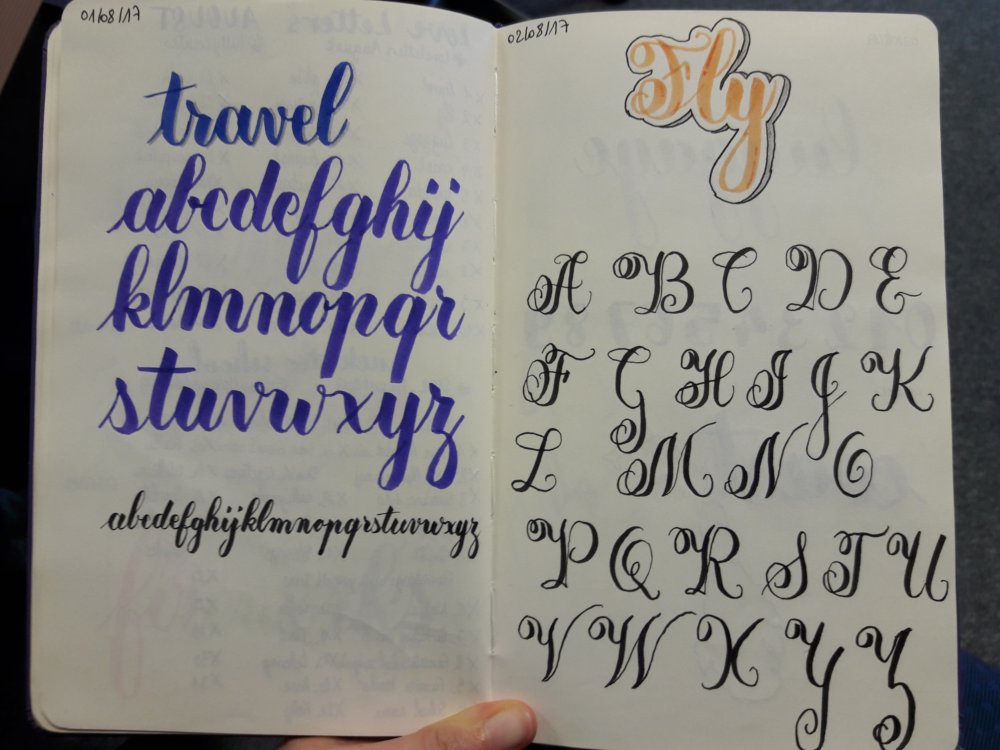 01/08/17
travel
abcdefghij
klmnopqr
stuvwxyz
abcdefghijklmnopqrstuvwxyz
02/08/17
Fly
A B C D E
F G H I J K
L M N O
P Q R S T U
V W X Y Z